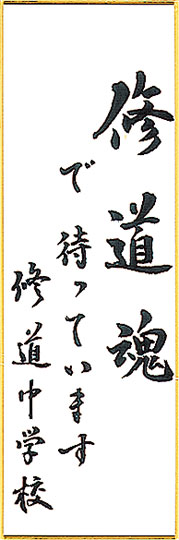 修道魂
で待っています
修道中学校